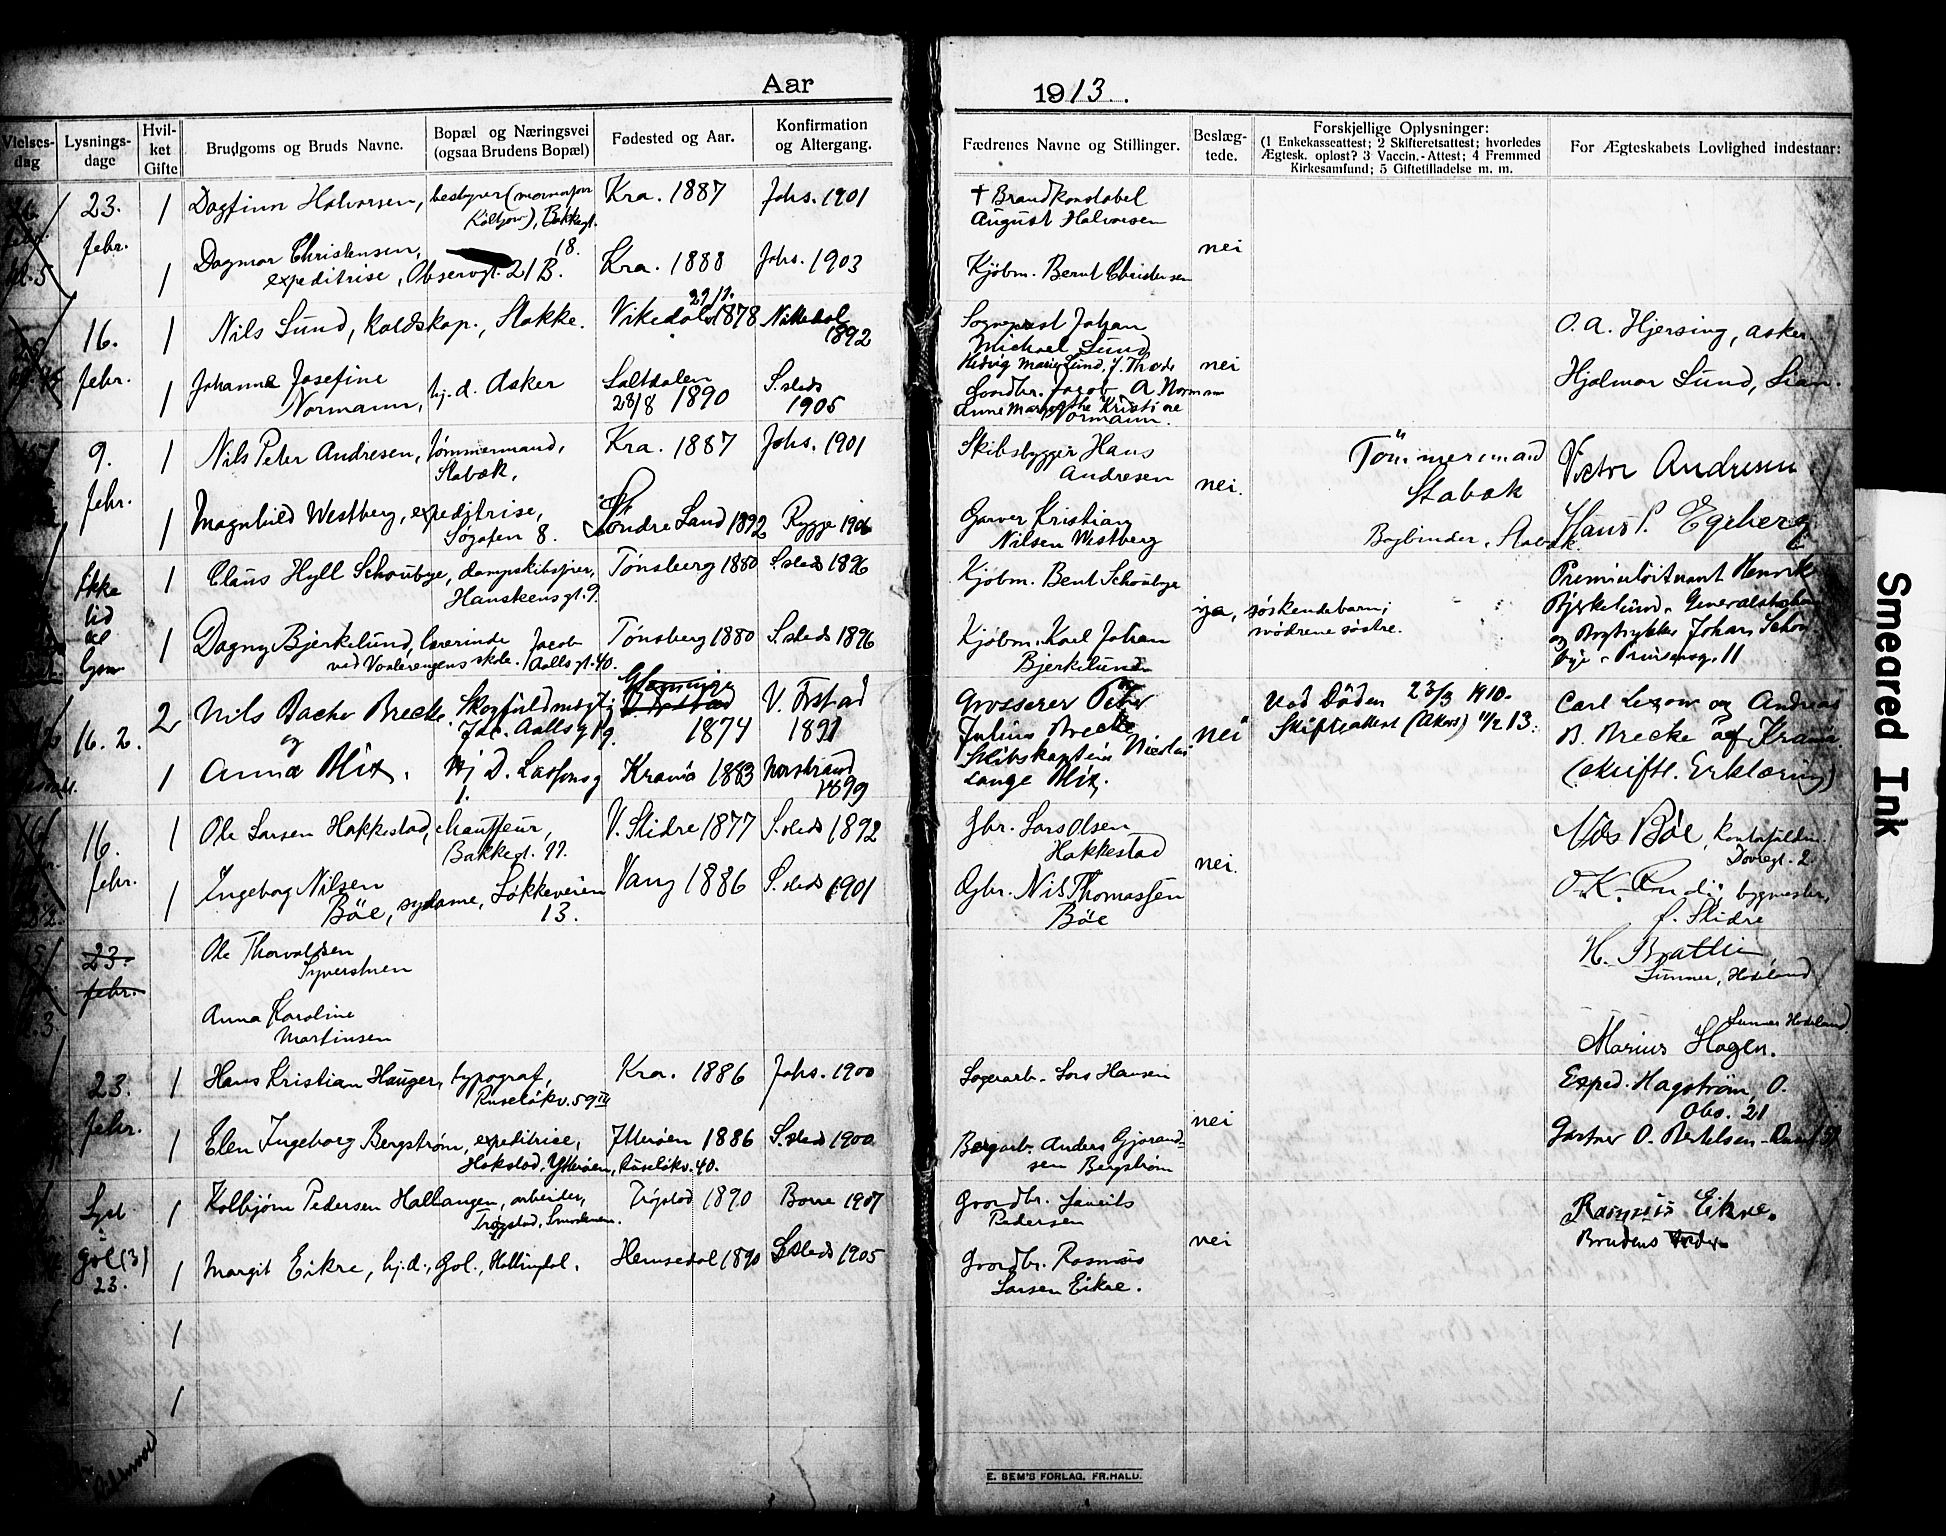 Aar
1913.
Vielses-
dag
Lysnings-
dage
Hvil-
ket
Gifte
Brudgoms og Bruds Navne.
Bopæl og Næringsvei
(ogsaa Brudens Bopæl)
Fødested og Aar.
Konfirmation
og Altergang.
Fædrenes Navne og Stillinger.
Beslæg-
tede.
Forskjellige Oplysninger:
(1 Enkekasseattest; 2 Skifteretsattest; hvorledes
Ægtesk. oplost? 3 Vaccin.-Attest; 4 Fremmed
Kirkesamfund; 5 Giftetilladelse m. m.
For Ægteskabets Lovlighed indestaar:
23. febr.
1 Dagfinn Halvorsen, bestyrer
18.
Kra. 1887 Johs. 1901
† Brandkonstabel
August Halvorsen
1 Dagmar Christensen,
expeditrise, Observgt. 21 B.
Kra. 1888 Johs. 1903
nei
Kjøbm. Bernt Christensen
16. febr.
1 Nils Lund, koldskap., Stokke.
Vikedal 1878
1892
Sogneprest Johan
Michael Lund
O. A. Hjersing, Asker
1 Johanne Josefine
Normann, hj.d. Asker
Saltdalen
28/8 1890
S.steds
1905
nei
Gaardbr. Jacob A Normann
Hjalmar Lund, Lian.
9. febr.
1 Nils Peter Andresen, tømmermand,
Stabæk,
Kra. 1887 Johs. 1901
Skibsbygger Hans
Andresen
Tömmermand
Stabæk
Victor Andresen
1 Magnhild Westberg, expeditrise,
Søgaten 8.
Søndre Land 1892 Rygge 1906
Garver Kristian
Nilsen Westberg
nei.
Bogbinder, Stabæk.
Hans P. Egeberg
Ikke
tid
til
lysn
1 Claus Hyll Schoubye, dampskibsfører,
Hauskensgt. 9.
Tønsberg 1880 S.steds 1896
Kjøbm. Bent Schoubye
Premierløitnant Henrik
Bjerkelund, Generalstaben
1 Dagny Bjerkelund, lærerinde
ved Vaalerengens skole. Jacob
Aallsgt. 40.
Tønsberg 1880 S.steds 1896
Kjøbm. Karl Johan
Bjerkelund
ja, søskendebarn;
mødrene søstre.
og Bogtrykker Johan Schou-
bye - Prinsensg. 11
16. 2.
2 Nils Backer Brecke. Skogfuldmægti
og
Jac. Aallsgt 9.
1874
V. Trstad
1891
Grosserer Peter
Julius Brecke
nei
Ved Döden 23/3 1910.
Skifteattest (Akers) 11/2 13.
Carl Lexow og Andreas
B. Brecke af Kra͞nia.
1 Anna Mix, Hj D. Lassonsg
1.
Krania 1883 Norstrand
1899
Skibskaptein Nicolai
Lange Mix,
(skriftl. Erklæring)
16. febr.
1 Ole Larsen Hakkestad, chauffeur,
Bakkegt. 11.
V. Slidre 1877 S.steds 1892
Gbr. Lars Olsen
Hakkestad
Nils Böe, kontorfuldm.
Dovregt. 2
1 Ingeborg Nilsen
Böe, sydame, Løkkeveien
13.
Vang 1886 S.steds 1901
nei.
Gbr. Nils Thomassen
Böe
bygmester,
f. Slidre
23. febr.
Ole Thorvaldsen
Syverstuen
H. Brattli
Lunner, Hadeland
Anna Karoline
Martinsen
Lunner Hadeland.
Marius Hagen.
23. febr.
1 Hans Kristian Hauger, typograf,
Ruseløkv. 59 III
Kra. 1886 Johs. 1900
Lagerarb. Lars Hansen
Exped. Hagström, O.
Obs. 21
1 Elen Ingeborg Bergstrøm, expeditrice,
Hokstad, Ytterøen, Ruseløkv. 40.
Ytterøen 1886 S.steds 1900
nei
Bergarb. Anders Gjørand-
sen Bergstrøm
Gartner O. Bertelsen
Lyst
Gol (3)
23.
1 Kolbjørn Pedersen Hallangen, arbeider,
Trøgstad, Smaalenene.
Trøgstad 1890 Borre 1907
Gaardbr. Laurits
Pedersen
Rasmus Eikre.
Brudens Fader
1 Margit Eikre, hj.d., Gol, Hallingdal.
Hemsedal 1890 S.steds 1905
nei
Gaardbr. Rasmus
Larsen Eikre.
1
1
E. SEM'S FORLAG, FR.HALD.
Smeared Ink